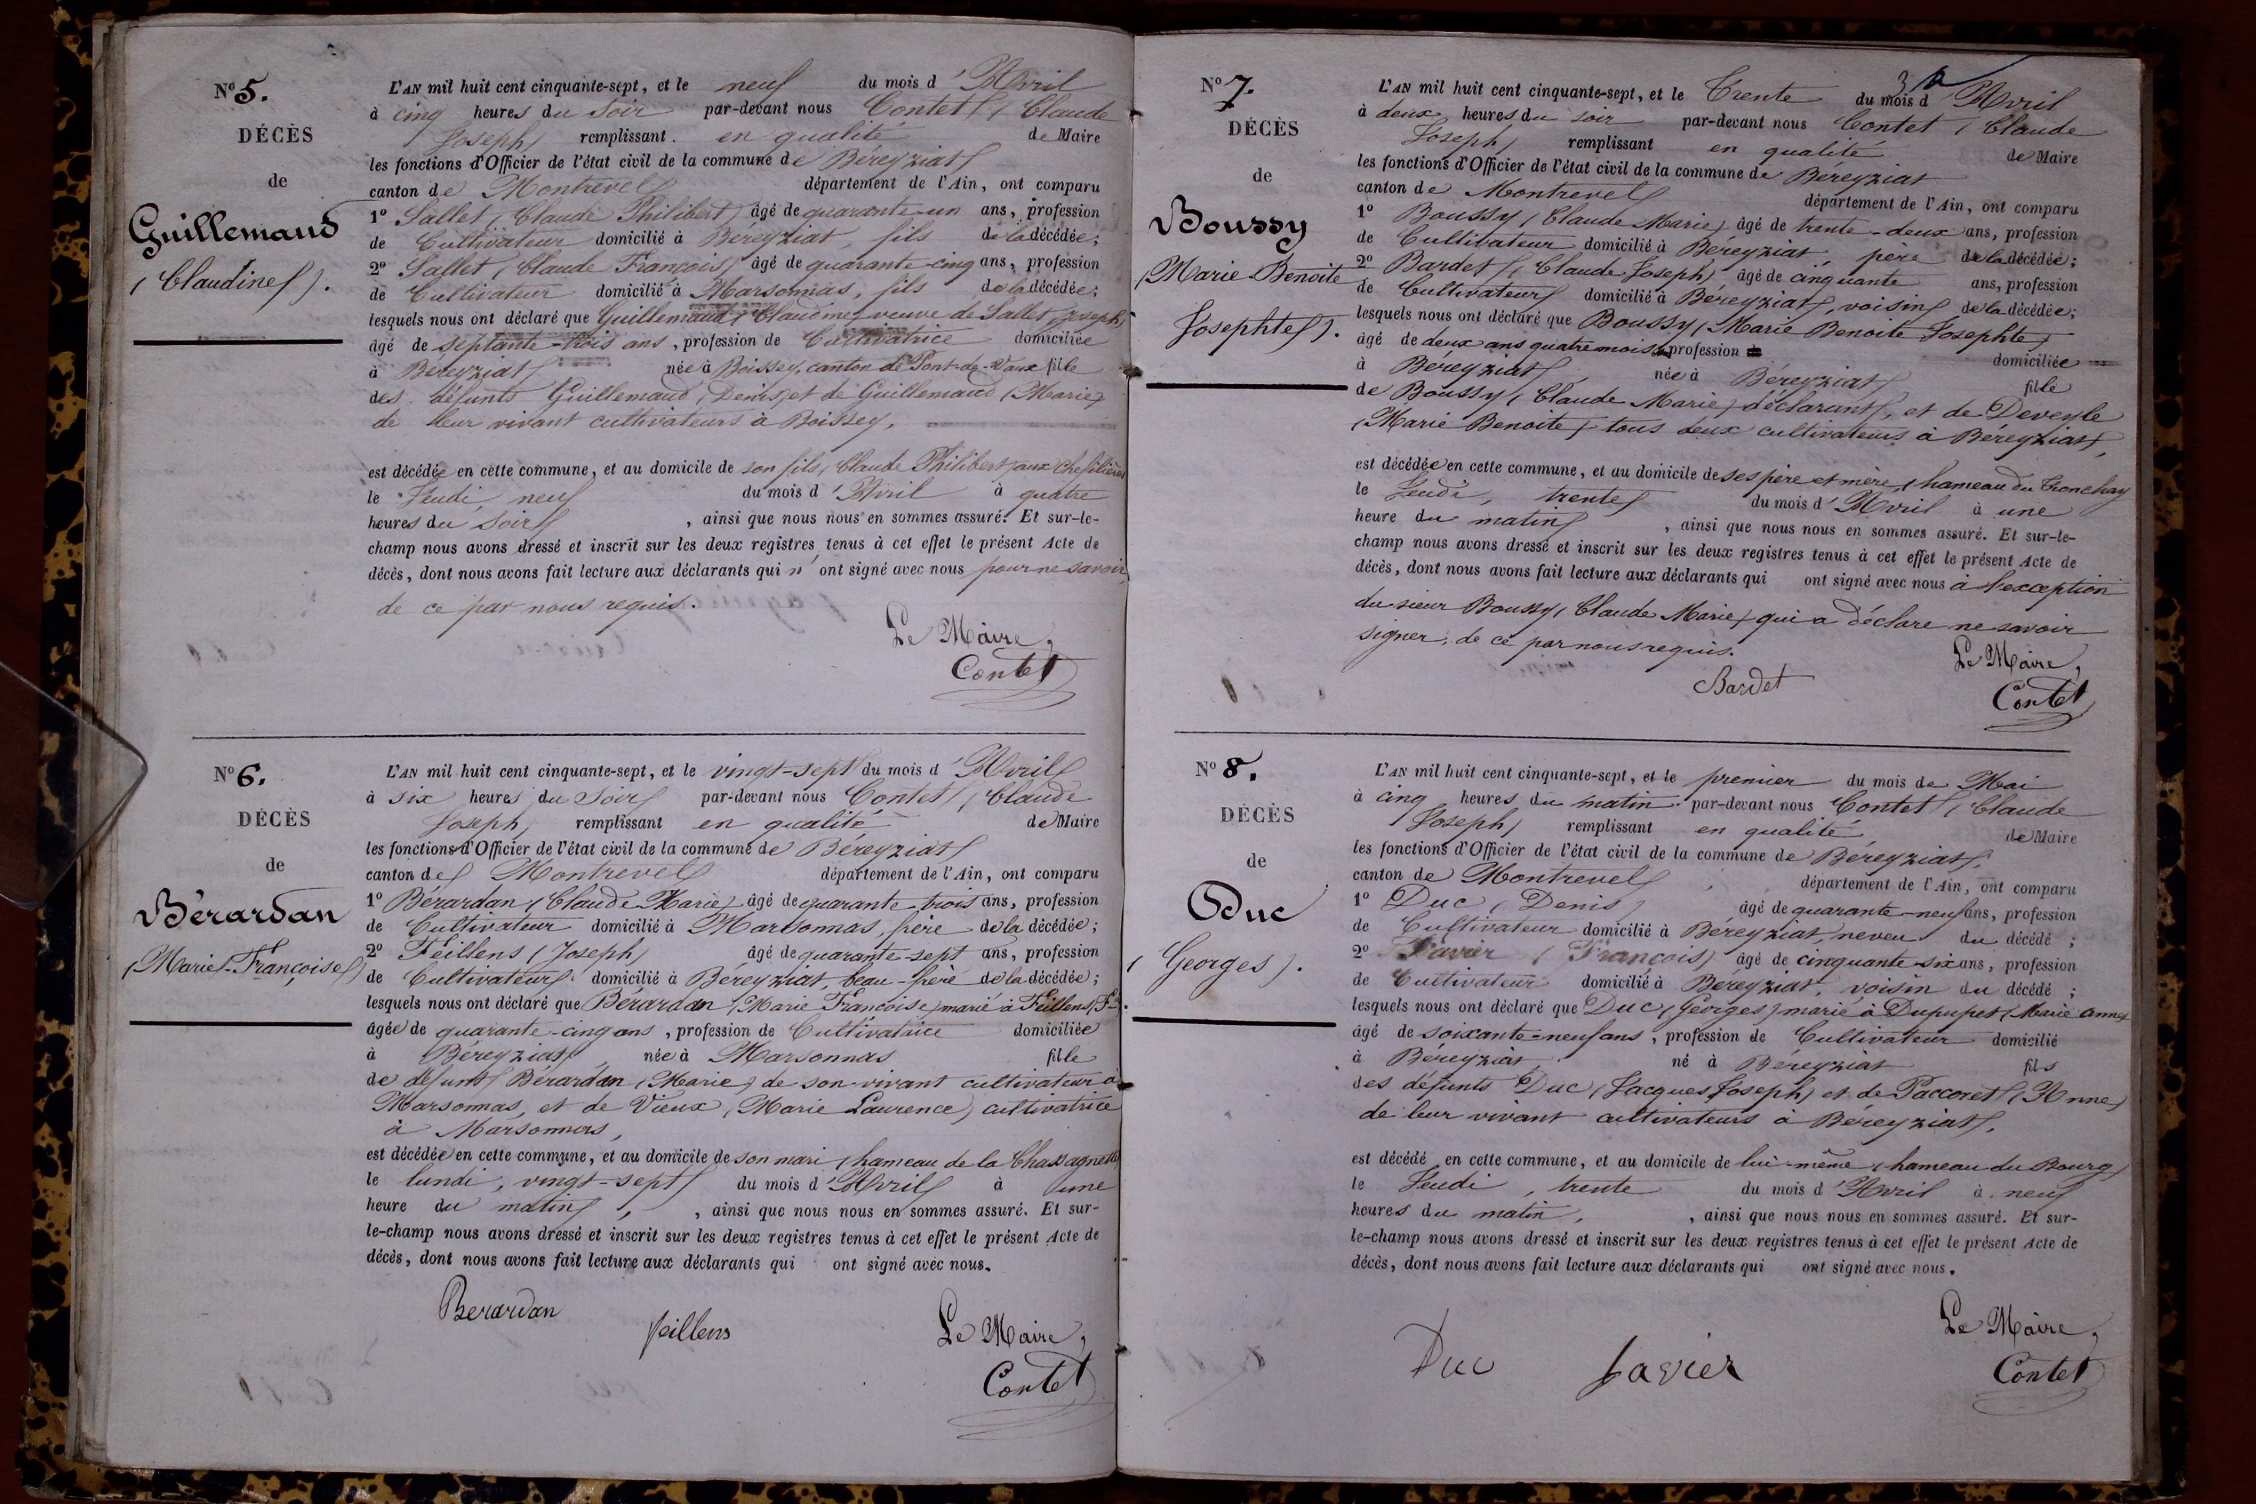 No 5.
DÉCÈS
de
Guillemaud
(Claudine).
L'AN mil huit cent cinquante-sept, et le neuf du mois d'Avril
à cinq heures du Soir par-devant nous Contet (Claude
Joseph) remplissant en qualité de Maire
les fonctions d'Officier de l'état civil de la commune de Béreyziat
canton de Montrevel département de l'Ain, ont comparu
1o Sallet (Claude Philibert) âgé de quarante-un ans, profession
de Cultivateur domicilié à Béreyziat fils de la décédée;
2o Sallet (Claude François) âgé de quarante-cinq ans, profession
de Cultivateur domicilié à Marsonnas, fils de la décédée;
lesquels nous ont déclaré que Guillemaud (Claudine) veuve de Sallet (Joseph)
âgé de septante-trois ans, profession de Cultivatrice domiciliée
à Béreyziat née à Boissey, canton de Pont-de-Vaux fille
des défunts Guillemaud (Denis) et de Guillemaud (Marie)
de leur vivant cultivateurs à Boissey,
est décédée en cette commune, et au domicile de son fils (Claude Philibert) aux
le Jeudi, neuf du mois d'Avril à quatre
heures du Soir, ainsi que nous nous en sommes assuré. Et sur-le-
champ nous avons dressé et inscrit sur les deux registres tenus à cet effet le présent Acte de
décès, dont nous avons fait lecture aux déclarants qui n'ont signé avec nous pour ne savoir
de ce par nous requis.
Le Maire,
Contet
No 6.
DÉCÈS
de
Bérardan
(Marie-Françoise)
L'AN mil huit cent cinquante-sept, et le vingt-sept du mois d'Avril
à six heures du Soir par-devant nous Contet (Claude
Joseph) remplissant en qualité de Maire
les fonctions d'Officier de l'état civil de la commune de Béreyziat
canton de Montrevel département de l'Ain, ont comparu
1o Bérardan (Claude Marie) âgé de quarante-trois ans, profession
de Cultivateur domicilié à Marsonnas, frère de la décédée;
2o Feillens (Joseph) âgé de quarante-sept ans, profession
de Cultivateur domicilié à Béreyziat, beau-frère de la décédée;
lesquels nous ont déclaré que Bérardan (Marie Françoise) marié à Feillens
âgée de quarante-cinq ans, profession de Cultivatrice domiciliée
à Béreyziat, née à Marsonnas fille
de défunt Bérardan (Marie) de son vivant cultivateur à
Marsonnas, et de Vieux (Marie Laurence) cultivatrice
à Marsonnas,
est décédée en cette commune, et au domicile de son mari (hameau de la Chassagnette)
le lundi, vingt-sept du mois d'Avril à une
heure du matin, ainsi que nous nous en sommes assuré. Et sur-
le-champ nous avons dressé et inscrit sur les deux registres tenus à cet effet le présent Acte de
décès, dont nous avons fait lecture aux déclarants qui ont signé avec nous.
Berardan
feillens
Le Maire,
Contet
No 7.
DÉCÈS
de
Boussy
(Marie-Benoite
Josephte).
L'AN mil huit cent cinquante-sept, et le Trente du mois d'Avril
à deux heures du soir par-devant nous Contet (Claude
Joseph) remplissant en qualité de Maire
les fonctions d'Officier de l'état civil de la commune de Béreyziat
canton de Montrevel département de l'Ain, ont comparu
1o Boussy (Claude Marie) âgé de trente-deux ans, profession
de Cultivateur domicilié à Béreyziat, père de la décédée;
2o Bardet (Claude Joseph) âgé de cinquante ans, profession
de Cultivateur domicilié à Béreyziat, voisin de la décédée;
lesquels nous ont déclaré que Boussy (Marie Benoite Josephte)
âgé de deux ans quatre mois profession domiciliée
à Béreyziat née à Béreyziat fille
de Boussy (Claude Marie) déclarant, et de Deveyle
(Marie Benoite) tous deux cultivateurs à Béreyziat,
est décédée en cette commune, et au domicile de ses père et mère (hameau du Tronchay
le Jeudi, trente du mois d'Avril à une
heure du matin, ainsi que nous nous en sommes assuré. Et sur-le-
champ nous avons dressé et inscrit sur les deux registres tenus à cet effet le présent Acte de
décès, dont nous avons fait lecture aux déclarants qui ont signé avec nous à l'exception
du sieur Boussy (Claude Marie) qui a déclaré ne savoir
signer, de ce par nous requis.
Bardet
Le Maire,
Contet
No 8.
DÉCÈS
de
Duc
(Georges).
L'AN mil huit cent cinquante-sept, et le premier du mois de Mai
à cinq heures du matin par-devant nous Contet (Claude
Joseph) remplissant en qualité de Maire
les fonctions d'Officier de l'état civil de la commune de Béreyziat
canton de Montrevel, département de l'Ain, ont comparu
1o Duc (Denis) âgé de quarante-neuf ans, profession
de Cultivateur domicilié à Béreyziat, neveu du décédé;
2o Favier (François) âgé de cinquante-six ans, profession
de Cultivateur domicilié à Béreyziat, voisin du décédé;
lesquels nous ont déclaré que Duc (Georges) marié à Dupupet (Marie Anne)
âgé de soixante-neuf ans, profession de Cultivateur domicilié
à Béreyziat né à Béreyziat fils
des défunts Duc (Jacques Joseph) et de Pacconet (Anne)
de leur vivant cultivateurs à Béreyziat,
est décédé en cette commune, et au domicile de lui-même (hameau du Bourg)
le Jeudi, trente du mois d'Avril à neuf
heures du matin, ainsi que nous nous en sommes assuré. Et sur-
le-champ nous avons dressé et inscrit sur les deux registres tenus à cet effet le présent Acte de
décès, dont nous avons fait lecture aux déclarants qui ont signé avec nous.
Duc
favier
Le Maire,
Contet